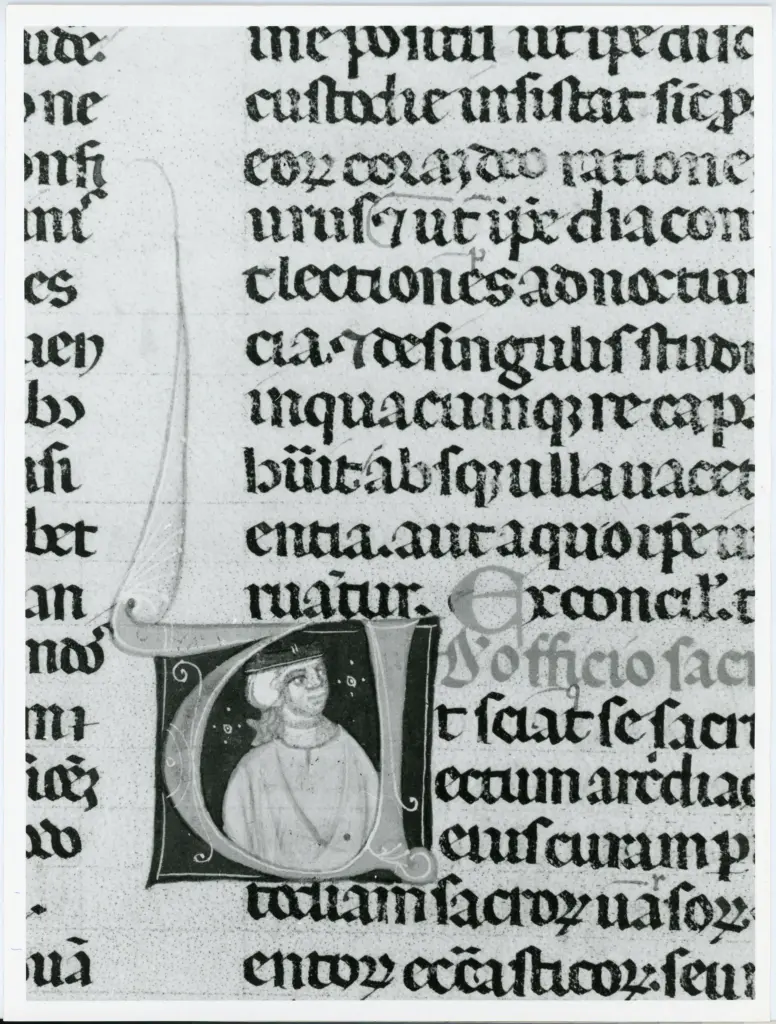 ude.
one
onfi
ani
es
uen
bo
asi
bet
an
ndo
mi
icẽ
odo
.
uã
me pontu ut ip̃e disc
custodie insistat sic p
eoꝝ coram deo ratione
urus ⁊ ut ip̃e diacon
t lectiones ad noctur
cia. ⁊ de singulis studi
in quacumqꝫ re cap
buĩt absqꝫ ulla uacet
entia. aut a quo ip̃e u
ruãtur. Ex concil̃. t
D̓ officio sacr
Ut sciat se sacri
ectum arc̃diac
eius curam p
todiam sacroꝝ uasoꝝ
entoꝝ ecc̃asticoꝝ. seu